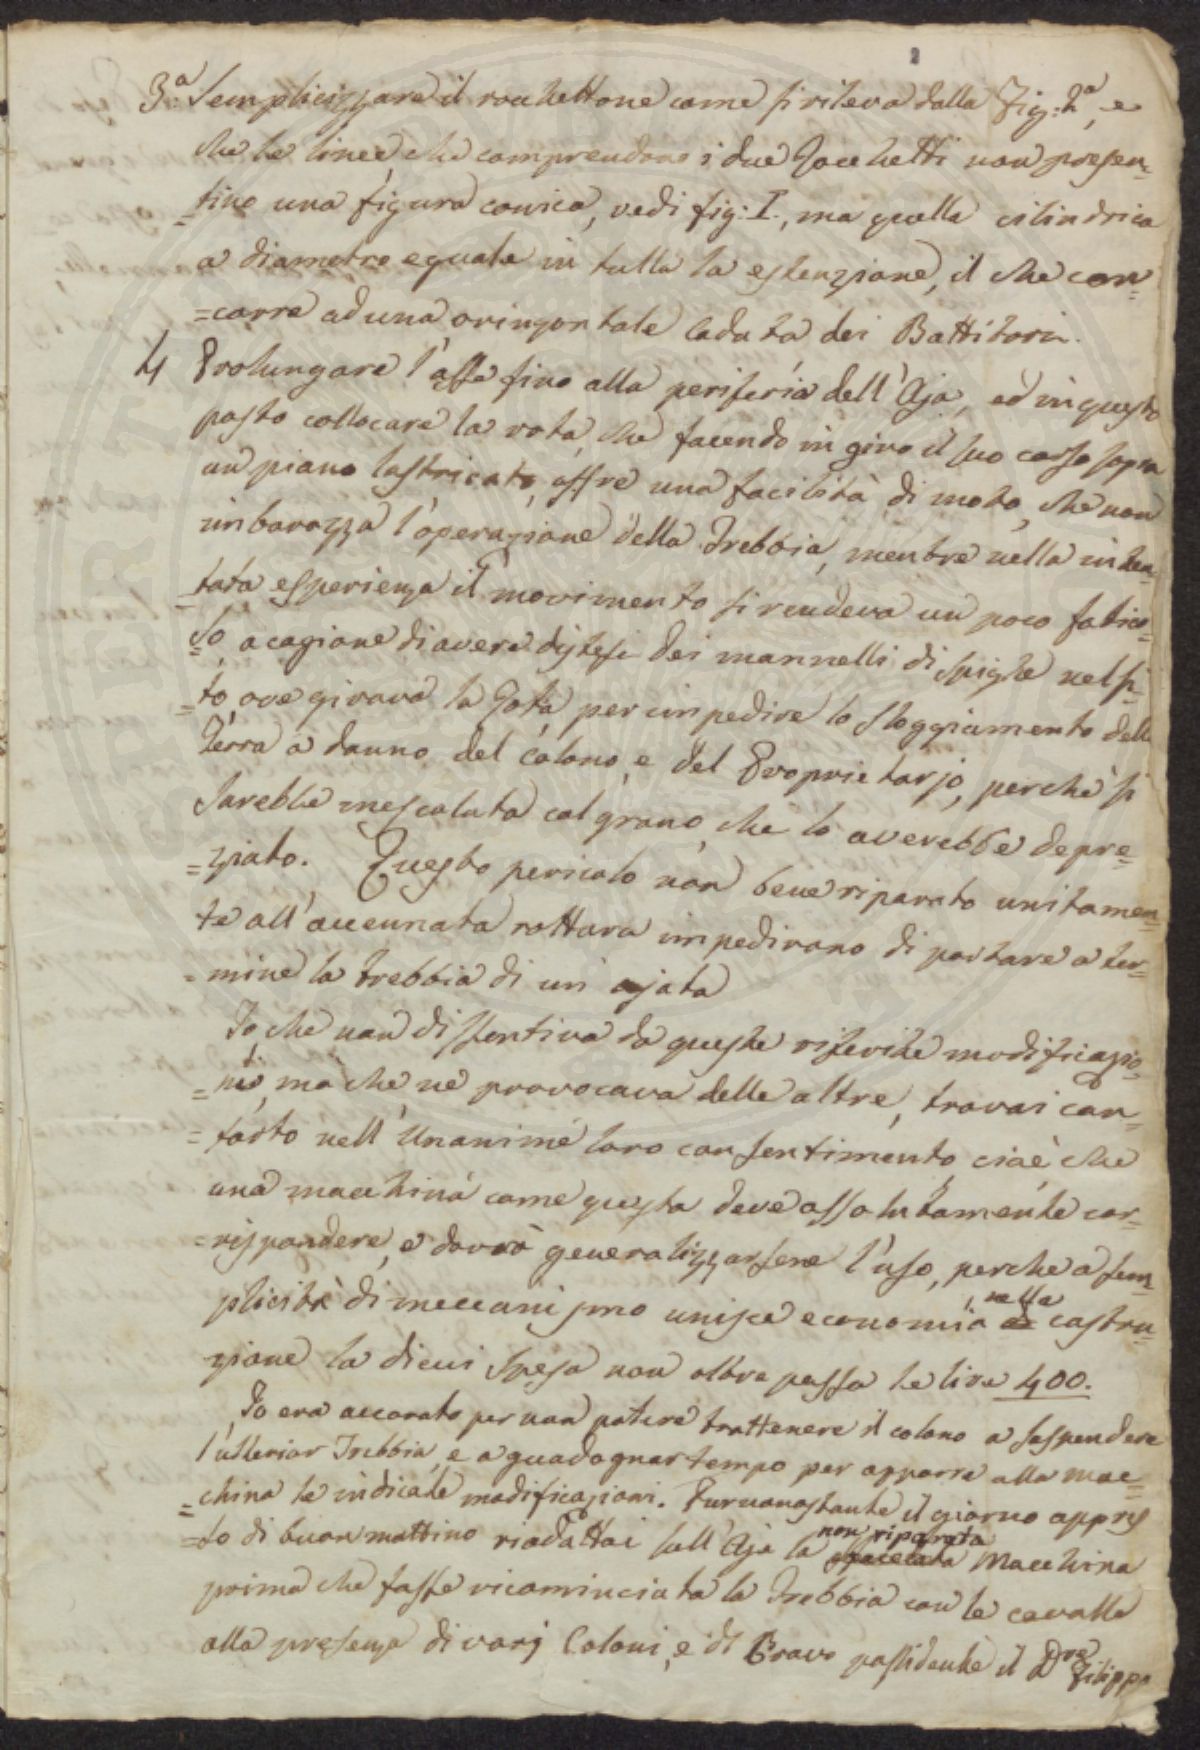 3.ª Semplicizzare il rocchettone come si rileva dalla Fig: 2ª, e
che le linee che comprendono i due Rocchetti non presen-
=tino una figura conica, vedi fig: I., ma quella cilindrica
a diametro eguale in tutta la estenzione, il che con-
=corre ad una orinzontale caduta dei Battitori.
4 Prolungare l'asse fino alla periferia dell'Aja, ed in questo
posto collocare la rota, che facendo in giro il suo corso sopra
un piano lastricato, offre una facilità di moto, che non
imbarazza l'operazione della Trebbia, mentre nella inten-
=tata esperienza il movimento si rendeva un poco fatico-
=so, a cagione di avere distesi dei mannelli di spighe nel si-
=to, ove girava la Rota per impedire lo sloggiamento della
Terra a danno del colono, e del Proprietarjo, perchè si
sarebbe mescolata col grano, che lo averebbe depre-
=ziato. Questo pericolo non bene riparato unitamen-
te all'accennata rottura impedirono di portare a ter-
=mine la trebbia di un ajata
Io, che non dissentiva da queste riferite modificazio-
=ni, ma che ne provocava delle altre, trovai con-
=forto nell'Unanime loro consentimento, cioè, che
una macchina come questa deve assolutamente cor-
=rispondere, e dovrò generalizzarsene l'uso, perche a sem-
plicità di meccanismo unisce economia nella costru-
zione la di cui spesa non oltre passa le lire 400.
Io era accorato per non potere trattenere il colono a sospendere
l'ulterior Trebbia, e a guadagnar tempo per apporre alla mac-
=china le indicate modificazioni. Purnonostante il giorno appres
=so di buon mattino riadattai sull'Aja la non riparata Macchina
prima che fosse ricominciata la Trebbia con le cavalle
alla presenza di varj Coloni, e di Bravo possidente il D.re Filippo